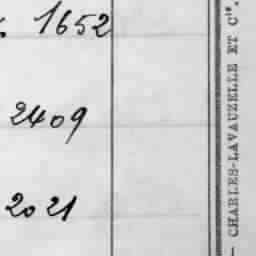 1652
2409
2021
— CHARLES-LAVAUZELLE ET Cie.